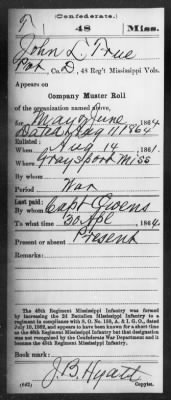 T (Confederate.)
48 Miss.
John L. True
Pvt, Co. D, 48 Reg't Mississippi Vols.
Appears on
Company Muster Roll
of the organization named above,
for May & June, 1864.
Dated Aug 11 1864
Enlisted:
When Aug 14, 1861.
Where Graysport Miss
By whom
Period War
Last paid:
By whom Capt Owens
To what time 30 Apl, 1864.
Present or absent Present
Remarks:
The 48th Regiment Mississippi Infantry was formed
by increasing the 2d Battalion Mississippi Infantry to a
regiment in compliance with S. O. No. 169, A. & I. G. O., dated
July 19, 1862, and appears to have been known for a short time
as the 40th Regiment Mississippi Infantry but that designation
was not recognized by the Confederate War Department and it
became the 48th Regiment Mississippi Infantry.
Book mark:
J. B. Hyatt
(642) Copyist.